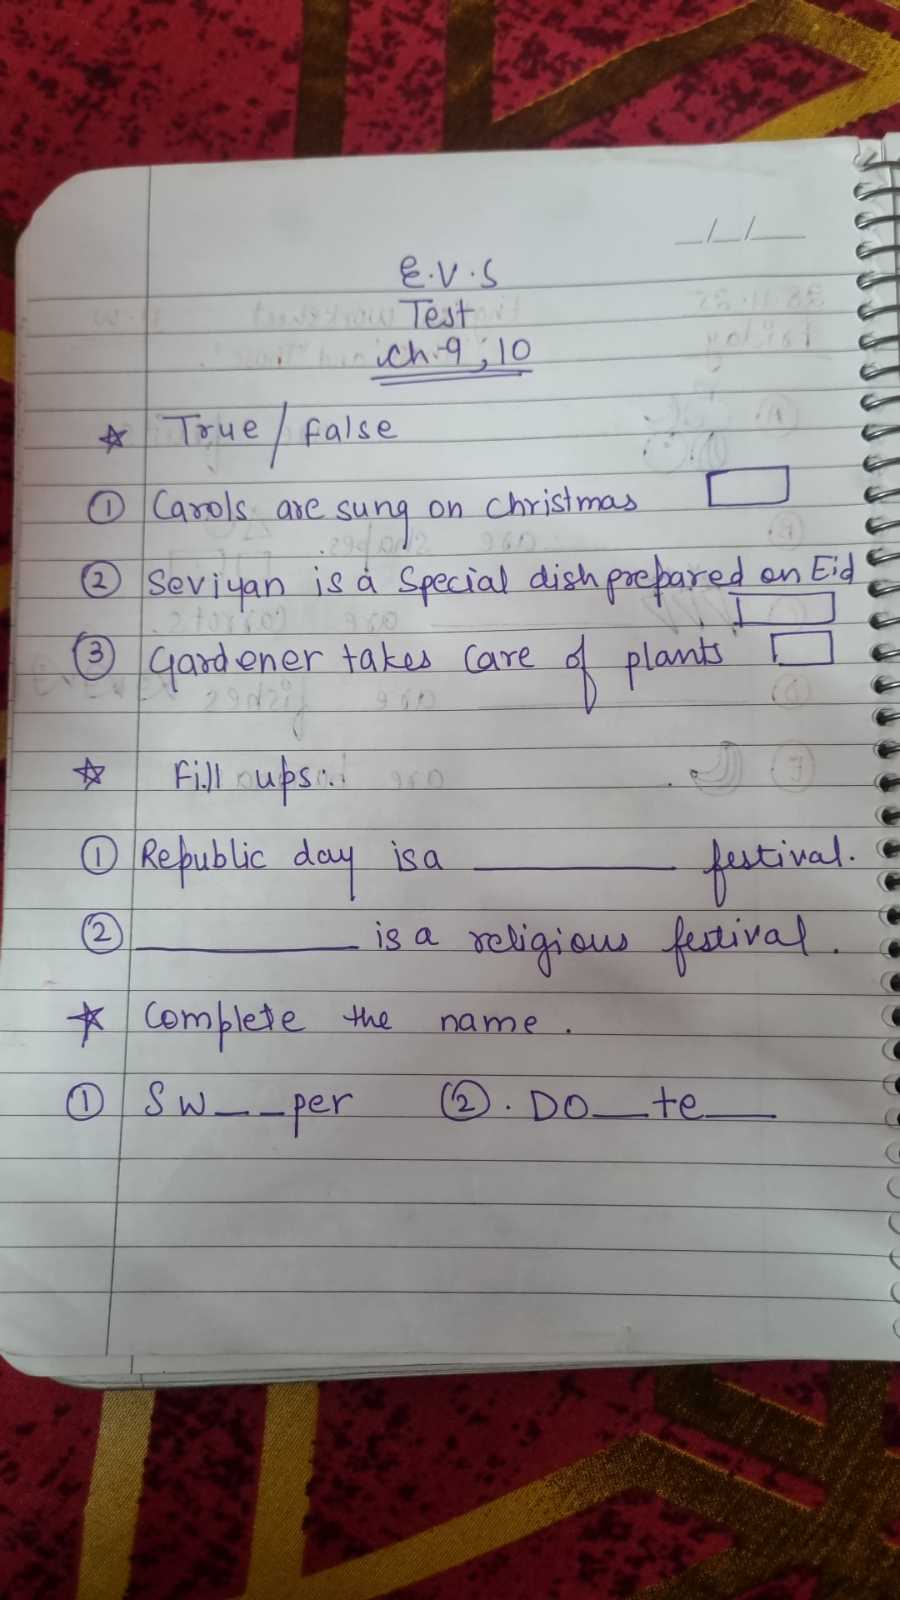 __/__/____
E.V.S
Test
Ch-9,10
☆ True/False
① Carols are sung on christmas
② Seviyan is a special dish prepared on Eid
③ Gardener takes care of plants
☆ Fill ups:
① Republic day is a ________ festival.
② ________ is a religious festival.
☆ Complete the name.
① Sw__per ②. DO__te__